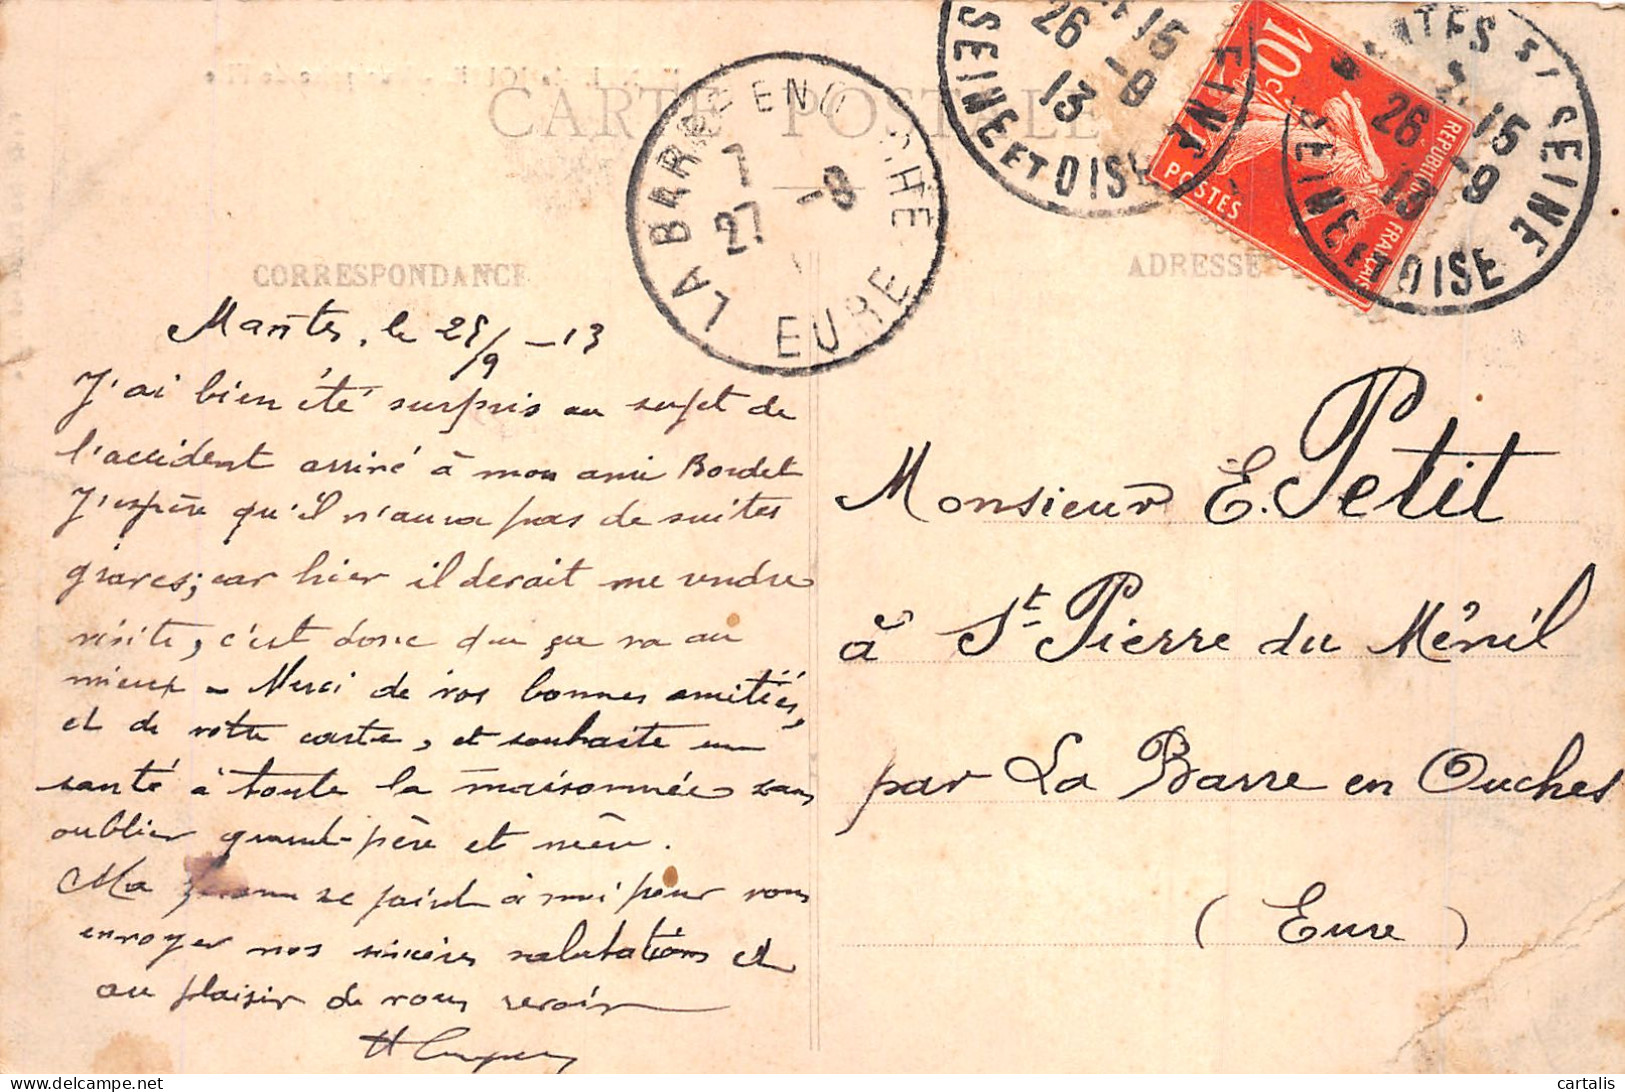 CARTE POSTALE
CORRESPONDANCE
ADRESSE
LA BARRE EN OUCHE
7
27 -9
EURE
15
26 -9
13
SEINE ET OISE
MANTES S/ SEINE
15
26 -9
13
SEINE ET OISE
10c
POSTES
REPUBLIQUE FRANÇAISE
Mantes, le 25/9 - 13
J'ai bien été surpris au sujet de
l'accident arrivé à mon ami Bordet
J'espère qu'il n'aura pas de suites
graves; car hier il devait me rendre
visite, c'est donc que ça va au
mieux - Merci de vos bonnes amitiés,
et de votre carte, et souhaite une
santé à toute la maisonnée sans
oublier grand-père et mère.
Ma femme se joint à moi pour vous
envoyer nos sincères salutations et
au plaisir de vous revoir
Monsieur E. Petit
à St Pierre du Ménil
par La Barre en Ouches
(Eure)
cartalis